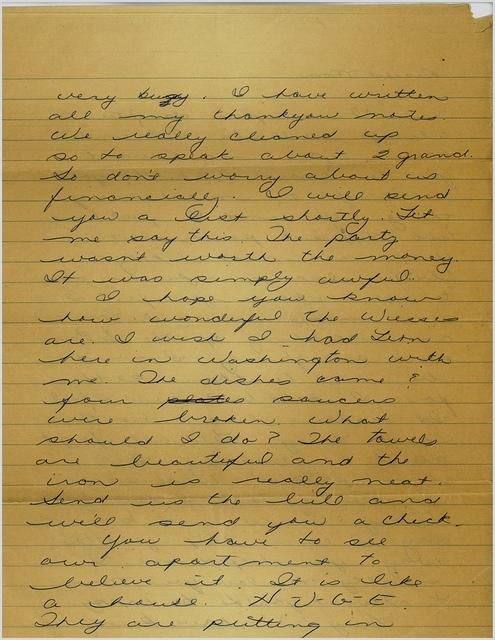 very busy. I have written
all my thankyou notes.
We really cleaned up
so to speak about 2 grand.
So don't worry about us
financially. I will send
you a list shortly. Let
me say this. The party
wasn't worth the money.
It was simply awful.
I hope you know
how wonderful the Wiesses
are. I wish I had Leon
here in Washington with
me. The dishes came &
four plates saucers
were broken. What
should I do? The towels
are beautiful and the
iron is really neat.
Send us the bill and
we'll send you a check.
You have to see
our apartment to
believe it. It is like
a house. H-U-G-E.
They are putting in